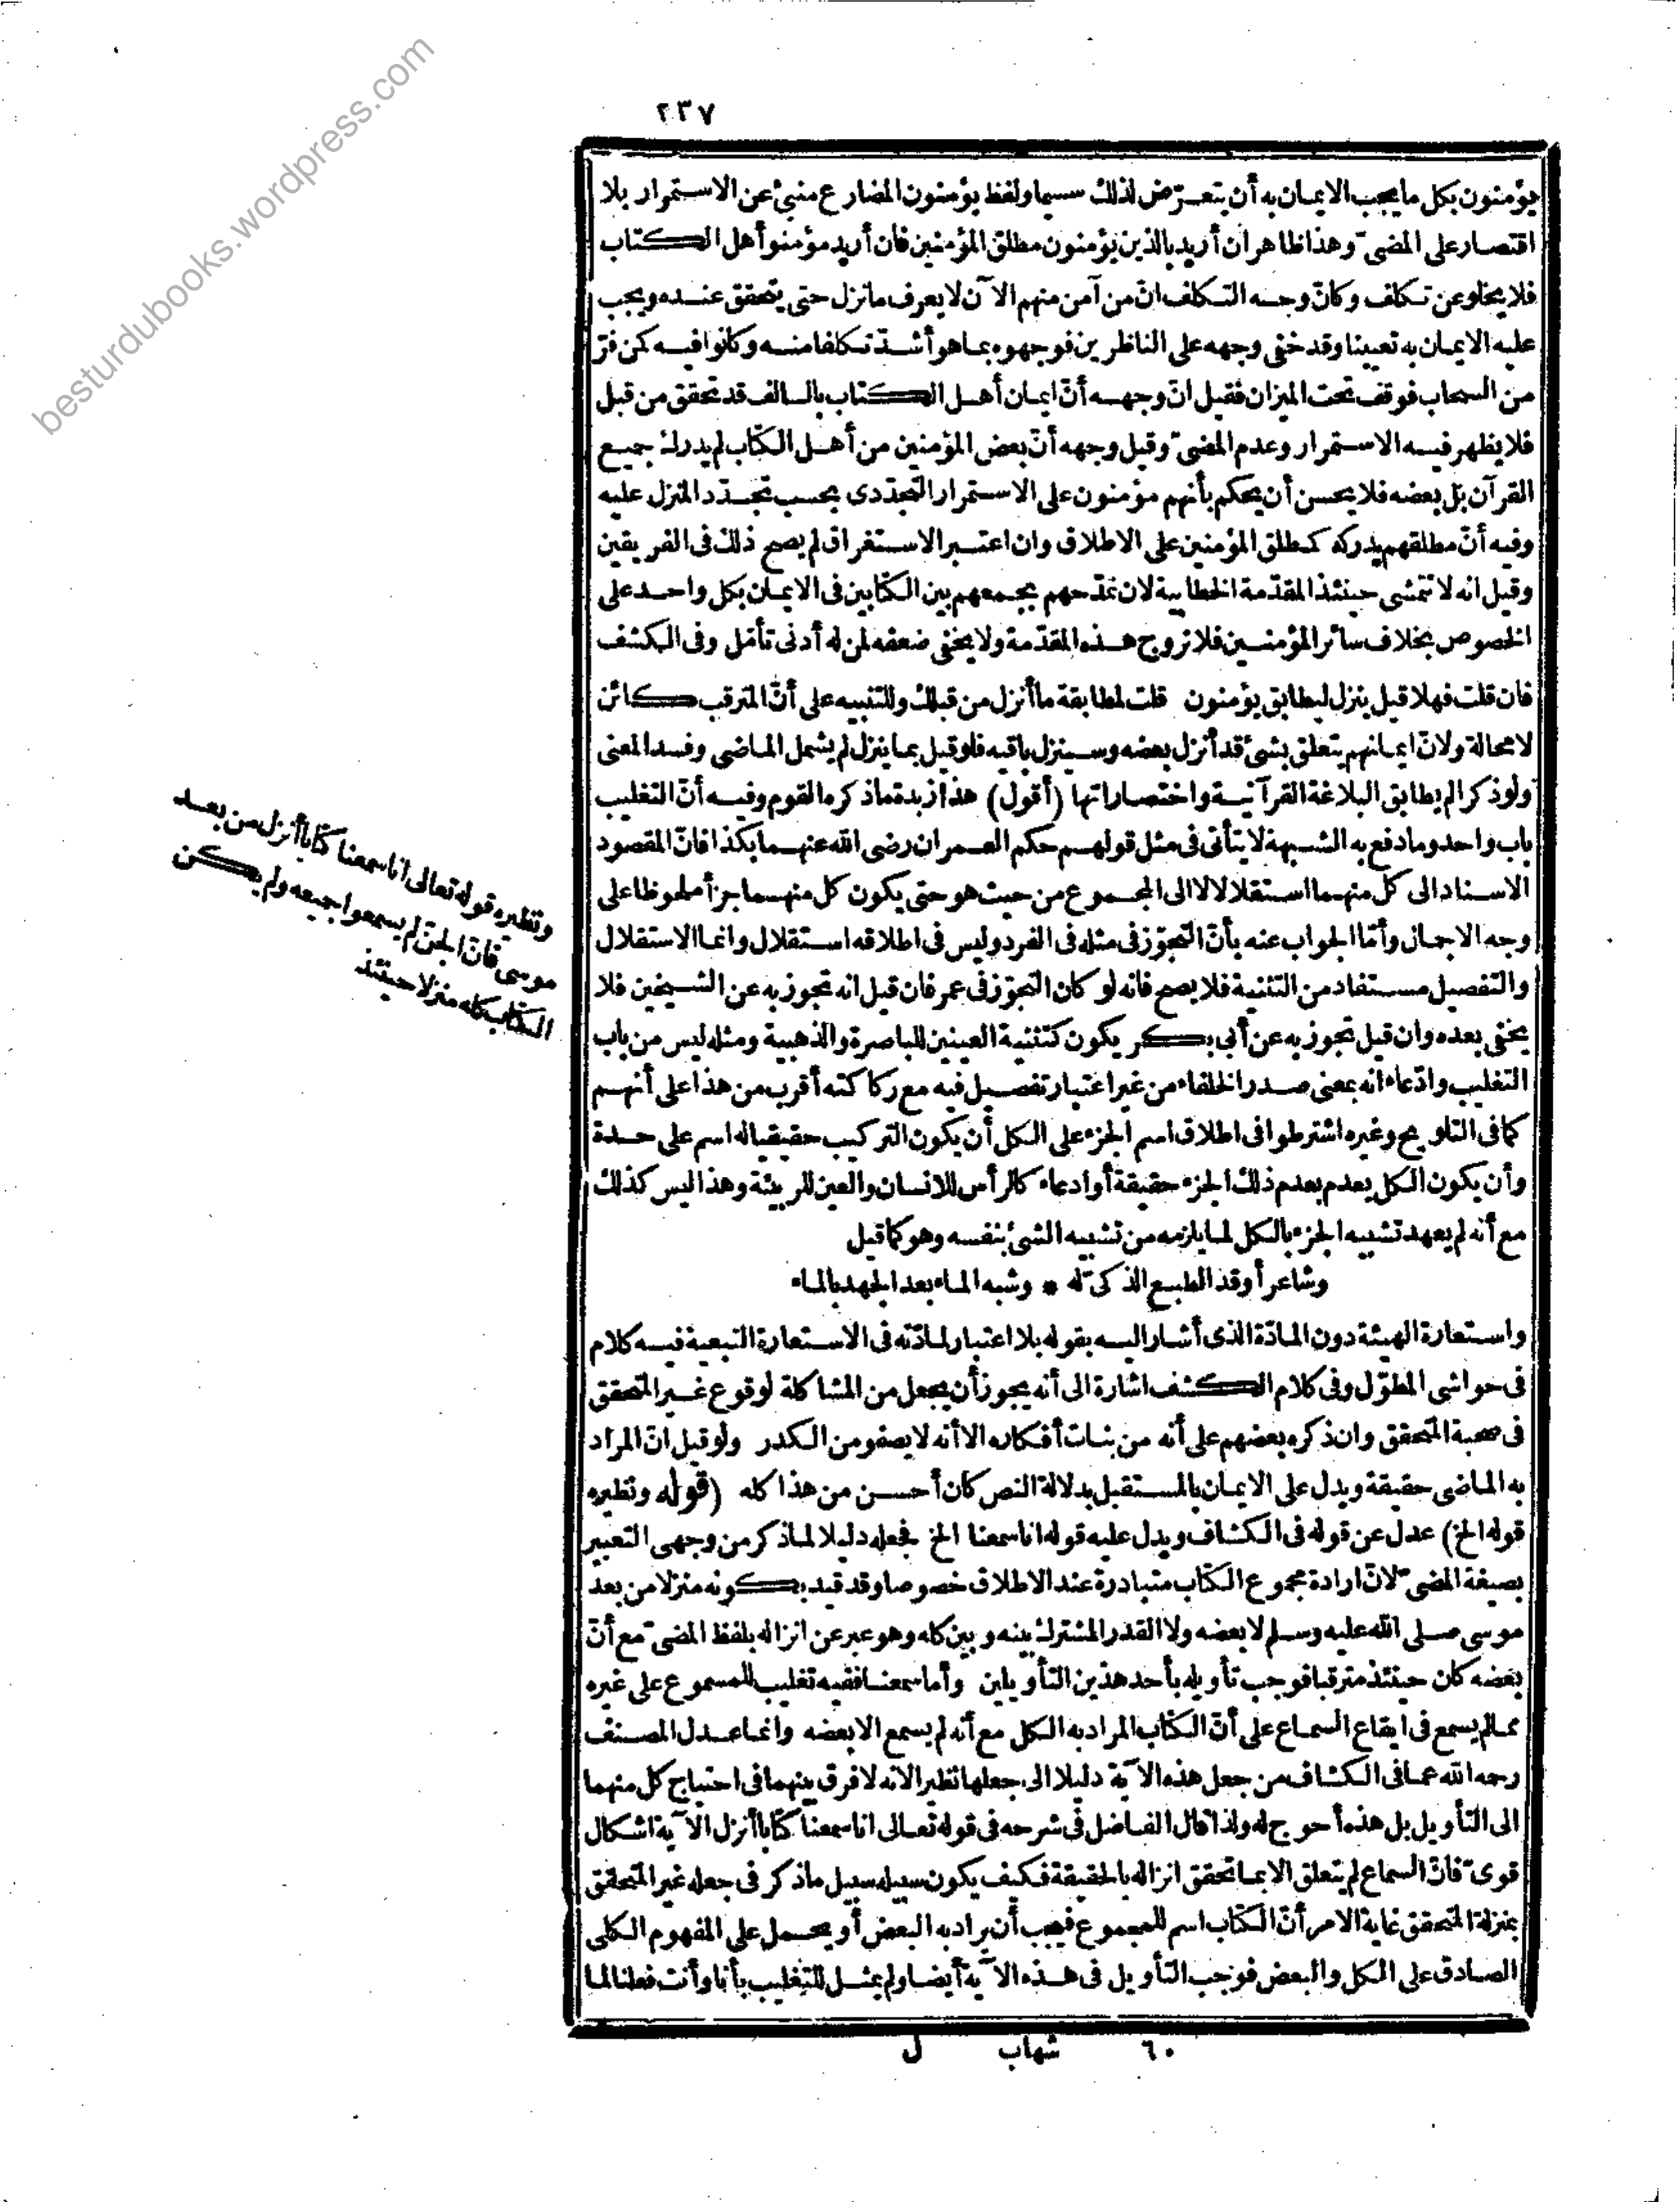 ٢٣٧
يؤمنون بكل ما يجب الايمان به أن يتعرّض لذلك سيما ولفظ يؤمنون المضارع منبئ عن الاستمرار بلا
اقتصار على المضىّ وهذا ظاهر ان أريد بالذين يؤمنون مطلق المؤمنين فان أريد مؤمنو أهل الكتاب
فلا يخلو عن تكلف وكانّ وجه التكلف انّ من آمن منهم الآن لا يعرف ما نزل حتى يتحقق عنده ويجب
عليه الايمان به تعيينا وقد خفى وجهه على الناظرين فوجهوه بما هو أشدّ تكلفا منه وكانوا فيه كمن فرّ
من السحاب فوقف تحت الميزان فقيل انّ وجهه أنّ ايمان أهل الكتاب بالسالف قد تحقق من قبل
فلا يظهر فيه الاستمرار وعدم المضىّ وقيل وجهه أنّ بعض المؤمنين من أهل الكتاب لم يدرك جميع
القرآن بل بعضه فلا يحسن أن يحكم بأنهم مؤمنون على الاستمرار التجدّدى بحسب تجدّد المنزل عليه
وفيه أنّ مطلقهم يدركه كمطلق المؤمنين على الاطلاق وان اعتبر الاستغراق لم يصح ذلك فى الفريقين
وقيل انه لا تتمشى حينئذ المقدّمة الخطابية لان تمدّحهم بجمعهم بين الكتابين فى الايمان بكل واحد على
الخصوص بخلاف سائر المؤمنين فلا تروج هذه المقدّمة ولا يخفى ضعفه لمن له أدنى تأمّل وفى الكشف
فان قلت فهلا قيل ينزل ليطابق يؤمنون قلت لمطابقة ما أنزل من قبلك وللتنبيه على أنّ المترقب كائن
لا محالة ولانّ ايمانهم يتعلق بشئ قد أنزل بعضه وسينزل باقيه فلو قيل بما ينزل لم يشمل الماضى وفسد المعنى
ولو ذكرا لم يطابق البلاغة القرآنية واختصاراتها (أقول) هذا زبدة ما ذكره القوم وفيه أنّ التغليب
باب واحد وما دفع به الشبهة لا يتأتى فى مثل قولهم حكم العمران رضى الله عنهما بكذا فانّ المقصود
الاسناد الى كل منهما استقلالا لا الى المجموع من حيث هو حتى يكون كل منهما جزأ ملحوظا على
وجه الاجمال وأمّا الجواب عنه بأنّ التجوّز فى مثله فى المفرد وليس فى اطلاقه استقلال وانما الاستقلال
والتفصيل مستفاد من التثنية فلا يصح فانه لو كان التجوّز فى عمر فان قيل انه تجوز به عن الشيخين فلا
يخفى بعده وان قيل تجوز به عن أبى بكر يكون كتثنية العينين للباصرة والذهبية ومثله ليس من باب
التغليب وادّعاء انه بمعنى صدر الخلفاء من غير اعتبار تفصيل فيه مع ركاكته أقرب من هذا على أنهم
كما فى التلويح وغيره اشترطوا فى اطلاق اسم الجزء على الكل أن يكون التركيب حقيقيا له اسم على حدة
وأن يكون الكل يعدم بعدم ذلك الجزء حقيقة أو ادعاء كالرأس للانسان والعين للربيئة وهذا ليس كذلك
مع أنه لم يعهد تشبيه الجزء بالكل لما يلزمه من تشبيه الشئ بنفسه وهو كما قيل
وشاعر أوقد الطبع الذكىّ له * وشبه الماء بعد الجهد بالماء
واستعارة الهيئة دون المادّة الذى أشار اليه بقوله بلا اعتبار لمادّته فى الاستعارة التبعية فيه كلام
فى حواشى المطوّل وفى كلام الكشف اشارة الى أنه يجوز أن يجعل من المشاكلة لوقوع غير المتحقق
فى صحبة المتحقق وان ذكره بعضهم على أنه من بنات أفكاره الا أنه لا يصفو من الكدر ولو قيل انّ المراد
به الماضى حقيقة ويدل على الايمان بالمستقبل بدلالة النص كان أحسن من هذا كله (قوله ونظيره
قوله الخ) عدل عن قوله فى الكشاف ويدل عليه قوله انا سمعنا الخ فجعله دليلا لما ذكر من وجهى التعبير
بصيغة المضىّ لانّ ارادة مجموع الكتاب متبادرة عند الاطلاق خصوصا وقد قيد بكونه منزلا من بعد
موسى صلى الله عليه وسلم لا بعضه ولا القدر المشترك بينه وبين كله وهو عبر عن انزاله بلفظ المضىّ مع أنّ
بعضه كان حينئذ مترقبا فوجب تأويله بأحد هذين التأويلين وأما سمعنا ففيه تغليب للمسموع على غيره
مما لم يسمع فى ايقاع السماع على أنّ الكتاب المراد به الكل مع أنه لم يسمع الا بعضه وانما عدل المصنف
رحمه الله عما فى الكشاف من جعل هذه الآية دليلا الى جعلها نظيرا لانه لا فرق بينهما فى احتياج كل منهما
الى التأويل بل هذه أحوج له ولذا قال الفاضل فى شرحه فى قوله تعالى انا سمعنا كتابا أنزل الآية اشكال
قوىّ فانّ السماع لم يتعلق الا بما تحقق انزاله بالحقيقة فكيف يكون سبيله سبيل ما ذكر فى جعله غير المتحقق
بمنزلة المتحقق غاية الامر أنّ الكتاب اسم للمجموع فيجب أن يراد به البعض أو يحمل على المفهوم الكلى
الصادق على الكل والبعض فوجب التأويل فى هذه الآية أيضا ولم يمثل للتغليب بأنا وأنت فعلنا لما
٦٠ شهاب ل
ونظيره قوله تعالى انا سمعنا كتابا أنزل من بعد
موسى فانّ الجنّ لم يسمعوا جميعه ولم يكن
الكتاب كله منزلا حينئذ
besturdubooks.wordpress.com